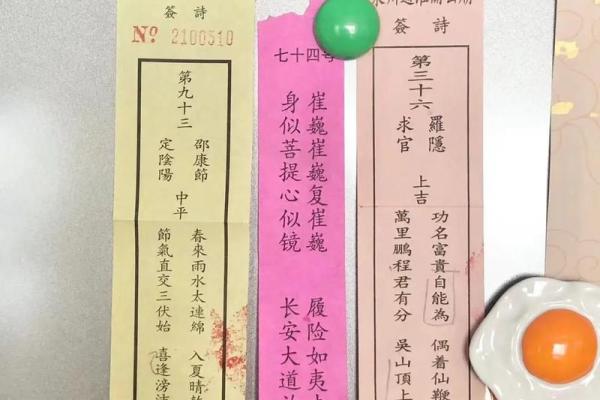 簽詩
Nº 2100510
第九十三
邵康節
定陰陽
中平
春來雨水太連綿
入夏晴
節氣直交三伏始
喜逢滂
七十四号
崔巍崔巍复崔巍
履险如夷
身似菩提心似镜
长安大道
簽詩
第三十六
羅隱
求官
上吉
功名富貴自能為
偶着仙鞭
萬里鵬程君有分
吳山頂上